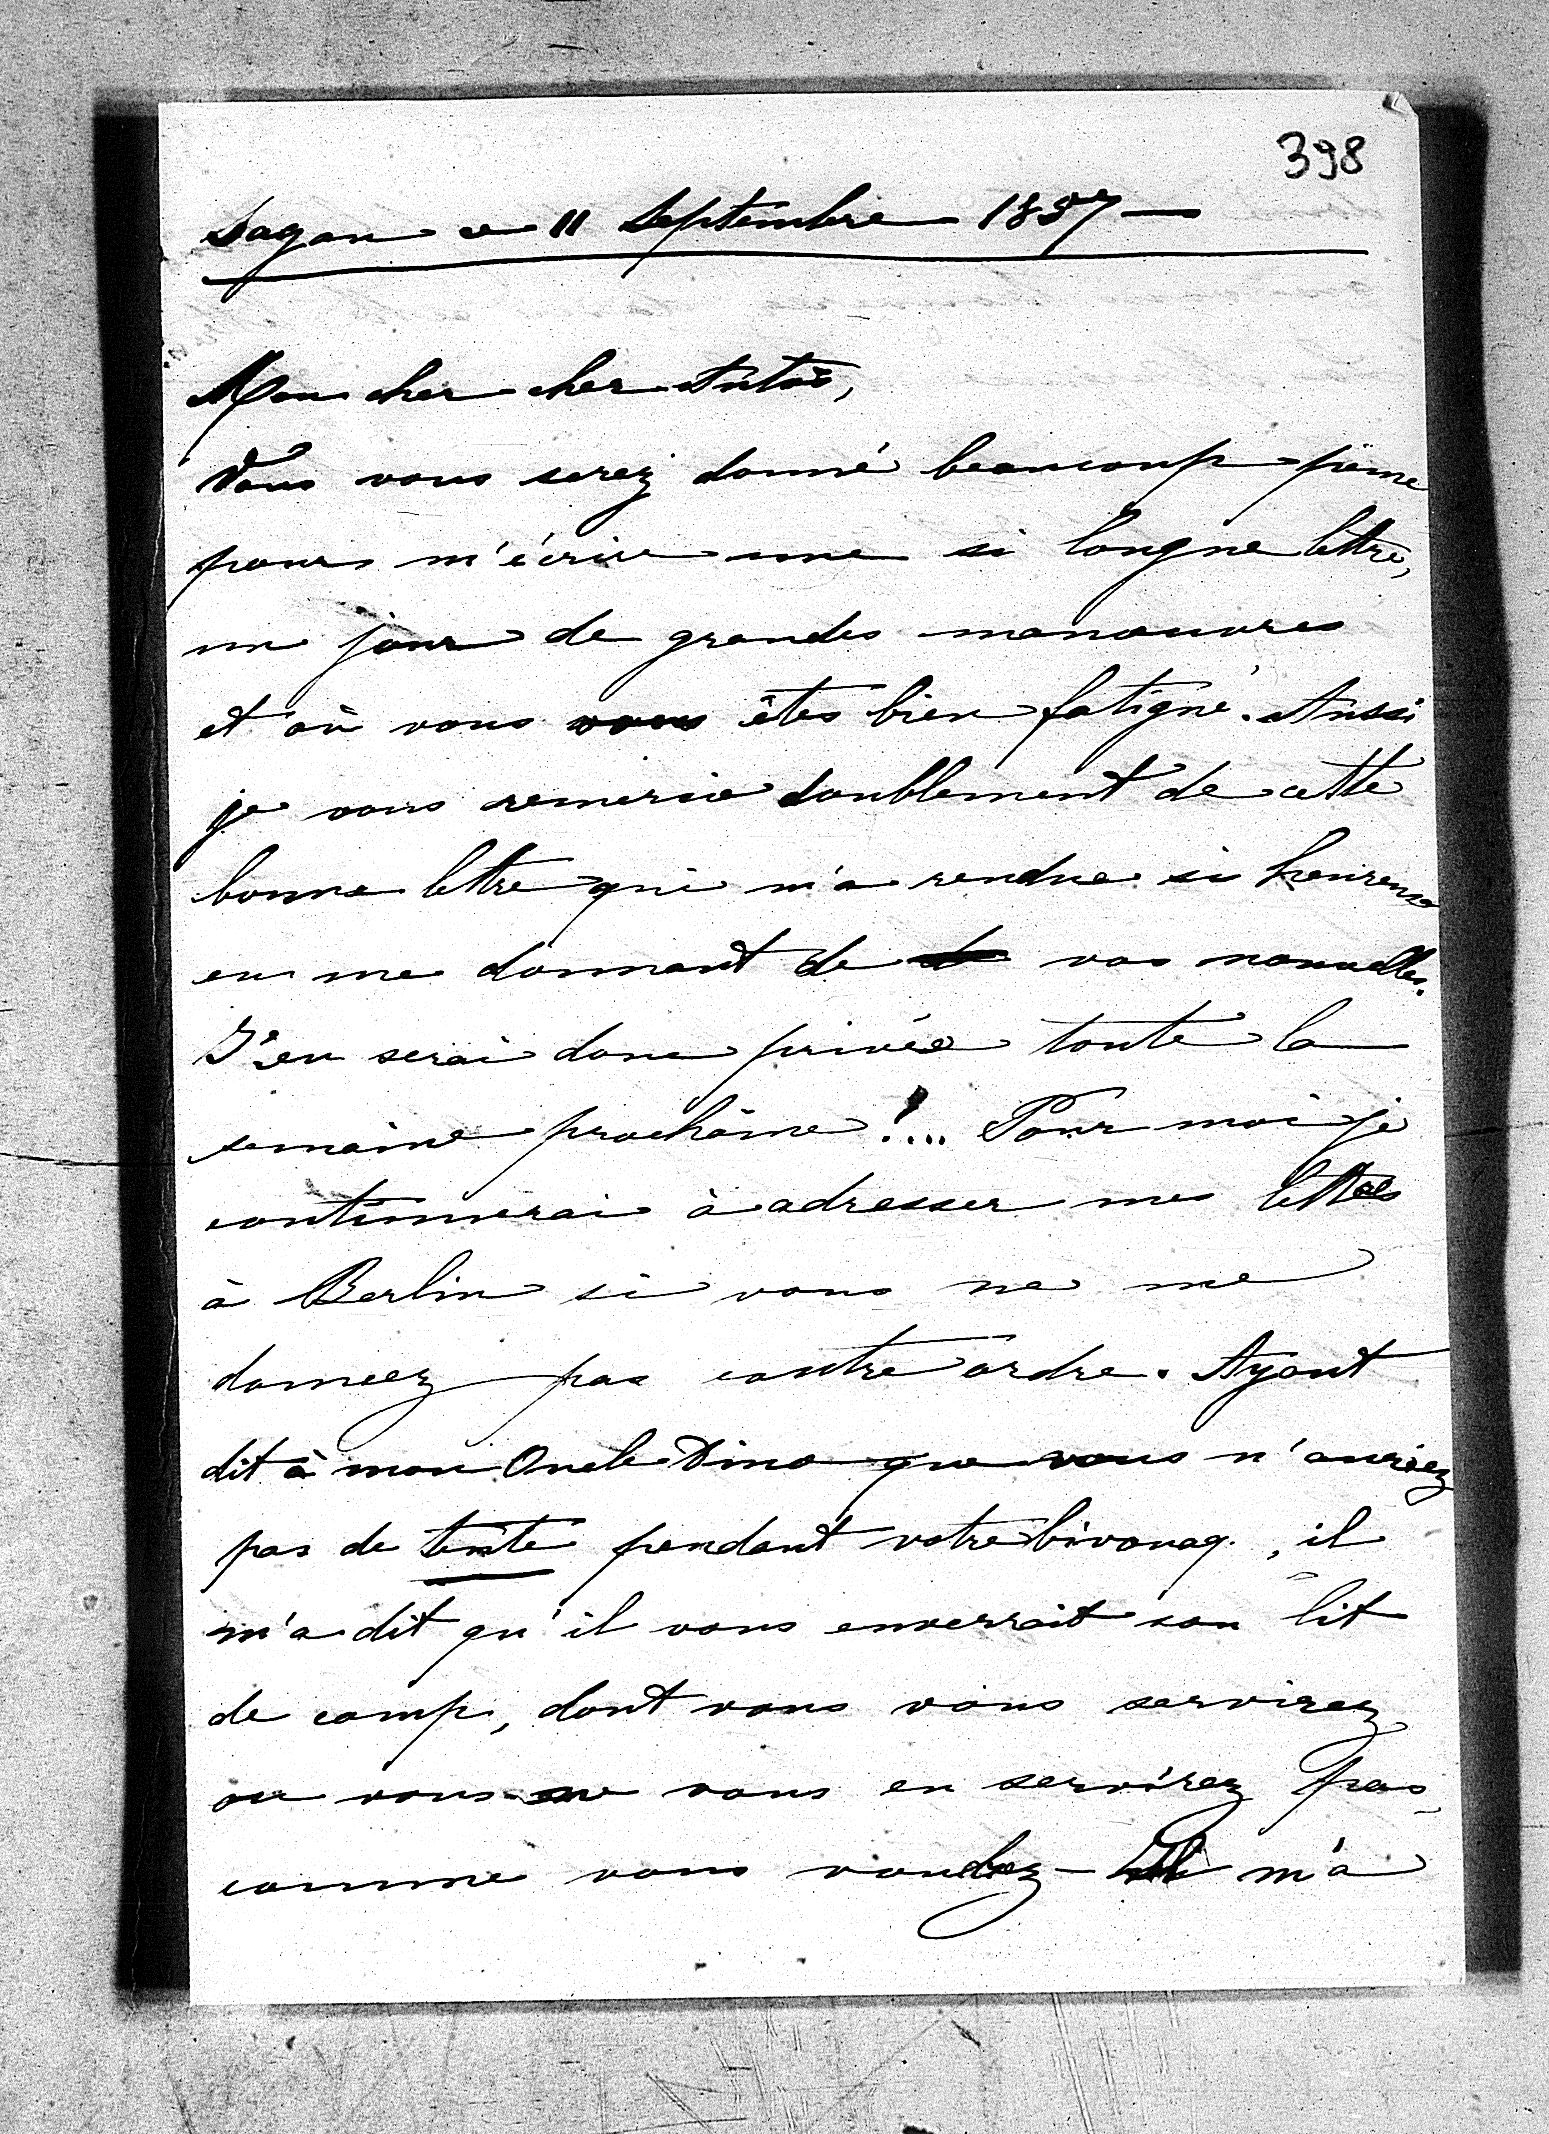 398
Sagan ce 11 Septembre 1857
Mon cher cher Antoi,
Vous vous serez donné beaucoup peine
pour m'écrire une si longue lettre,
un jour de grandes manoeuvres
et où vous vous êtes bien fatigué. Aussi
je vous remercie doublement de cette
bonne lettre qui m'a rendue si heureuse
en me donnant de vos nouvelles.
J'en serai donc privée toute la
semaine prochaine !... Pour moi je
continuerai à adresser mes lettres
à Berlin si vous ne me
donnez pas contre ordre. Ayant
dit à mon Oncle Dino que vous n'auriez
pas de tente pendant votre bivouaq., il
m'a dit qu'il vous enverrait son lit
de camp, dont vous vous servirez
ou vous ne vous en servirez pas,
comme vous voudrez - Il m'a